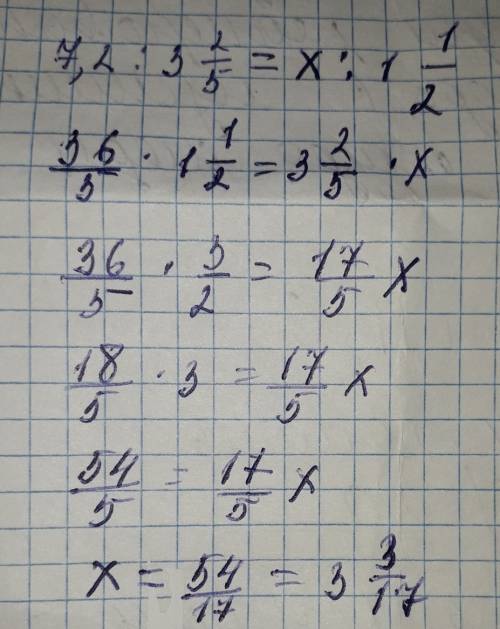 7,2 : 3 2/5 = x : 1 1/2
36/5 · 1 1/2 = 3 2/5 · x
36/5 · 3/2 = 17/5 x
18/5 · 3 = 17/5 x
54/5 = 17/5 x
x = 54/17 = 3 3/17